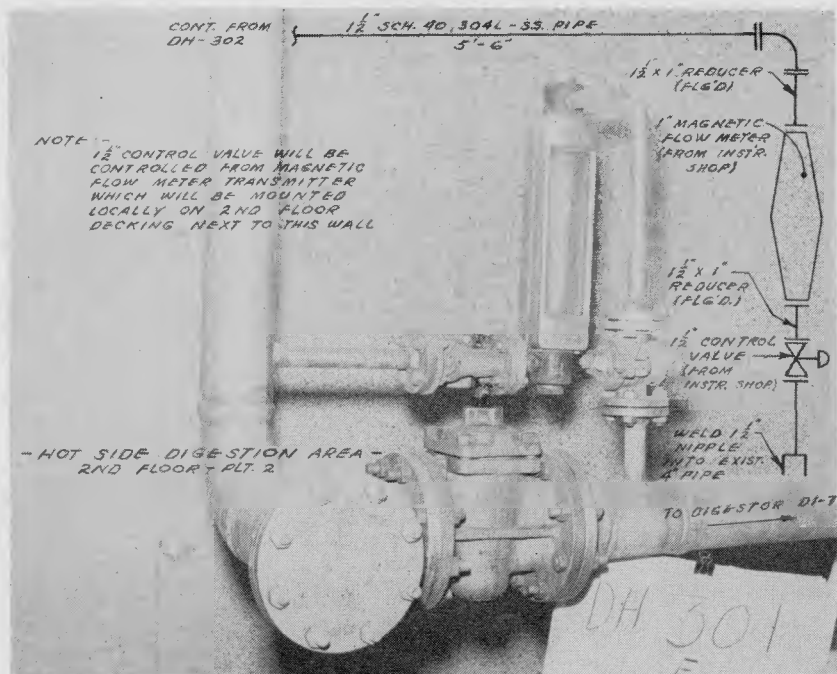 CONT. FROM
DH-302
1 1/2" SCH. 40, 304L-S.S. PIPE
5'-6"
1 1/2 X 1" REDUCER
(FLG'D)
1" MAGNETIC
FLOW METER
(FROM INSTR.
SHOP)
NOTE -
1 1/2" CONTROL VALVE WILL BE
CONTROLLED FROM MAGNETIC
FLOW METER TRANSMITTER
WHICH WILL BE MOUNTED
LOCALLY ON 2ND FLOOR
DECKING NEXT TO THIS WALL
1 1/2" X 1"
REDUCER
(FLG'D.)
1 1/2" CONTROL
VALVE
(FROM
INSTR. SHOP)
- HOT SIDE DIGESTION AREA -
2ND FLOOR - PLT. 2
WELD 1 1/2"
NIPPLE
INTO EXIST.
4" PIPE
TO DIGESTOR
DH 301